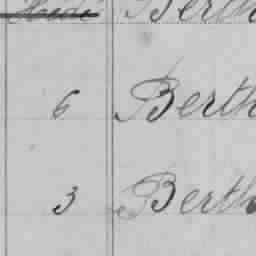 Berth
6 Berth
3 Berth